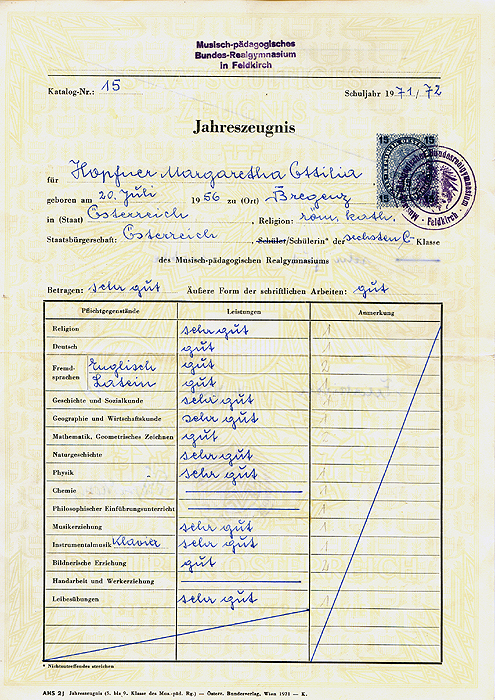 Musisch-pädagogisches
Bundes-Realgymnasium
in Feldkirch
Katalog-Nr.: 15 Schuljahr 1971/72
Jahreszeugnis
15 15
für Hopfner Margaretha Ottilia
geboren am 20. Juli 1956 zu (Ort) Bregenz
in (Staat) Österreich, Religion: röm. kath.
Staatsbürgerschaft: Österreich, Schüler/Schülerin* der sechsten/C Klasse
des Musisch-pädagogischen Realgymnasiums
Betragen: sehr gut Äußere Form der schriftlichen Arbeiten: gut
Pflichtgegenstände Leistungen Anmerkung
Religion sehr gut 1
Deutsch gut
Fremdsprachen Englisch gut 2
Latein gut
Geschichte und Sozialkunde sehr gut 1
Geographie und Wirtschaftskunde sehr gut 1
Mathematik, Geometrisches Zeichnen gut
Naturgeschichte sehr gut 1
Physik sehr gut 1
Chemie
Philosophischer Einführungsunterricht
Musikerziehung sehr gut 1
Instrumentalmusik Klavier sehr gut 1
Bildnerische Erziehung gut 2
Handarbeit und Werkerziehung
Leibesübungen sehr gut 1
* Nichtzutreffendes streichen
AHS 2j Jahreszeugnis (5. bis 9. Klasse des Mus.-päd. Rg.) — Österr. Bundesverlag, Wien 1971 — K.